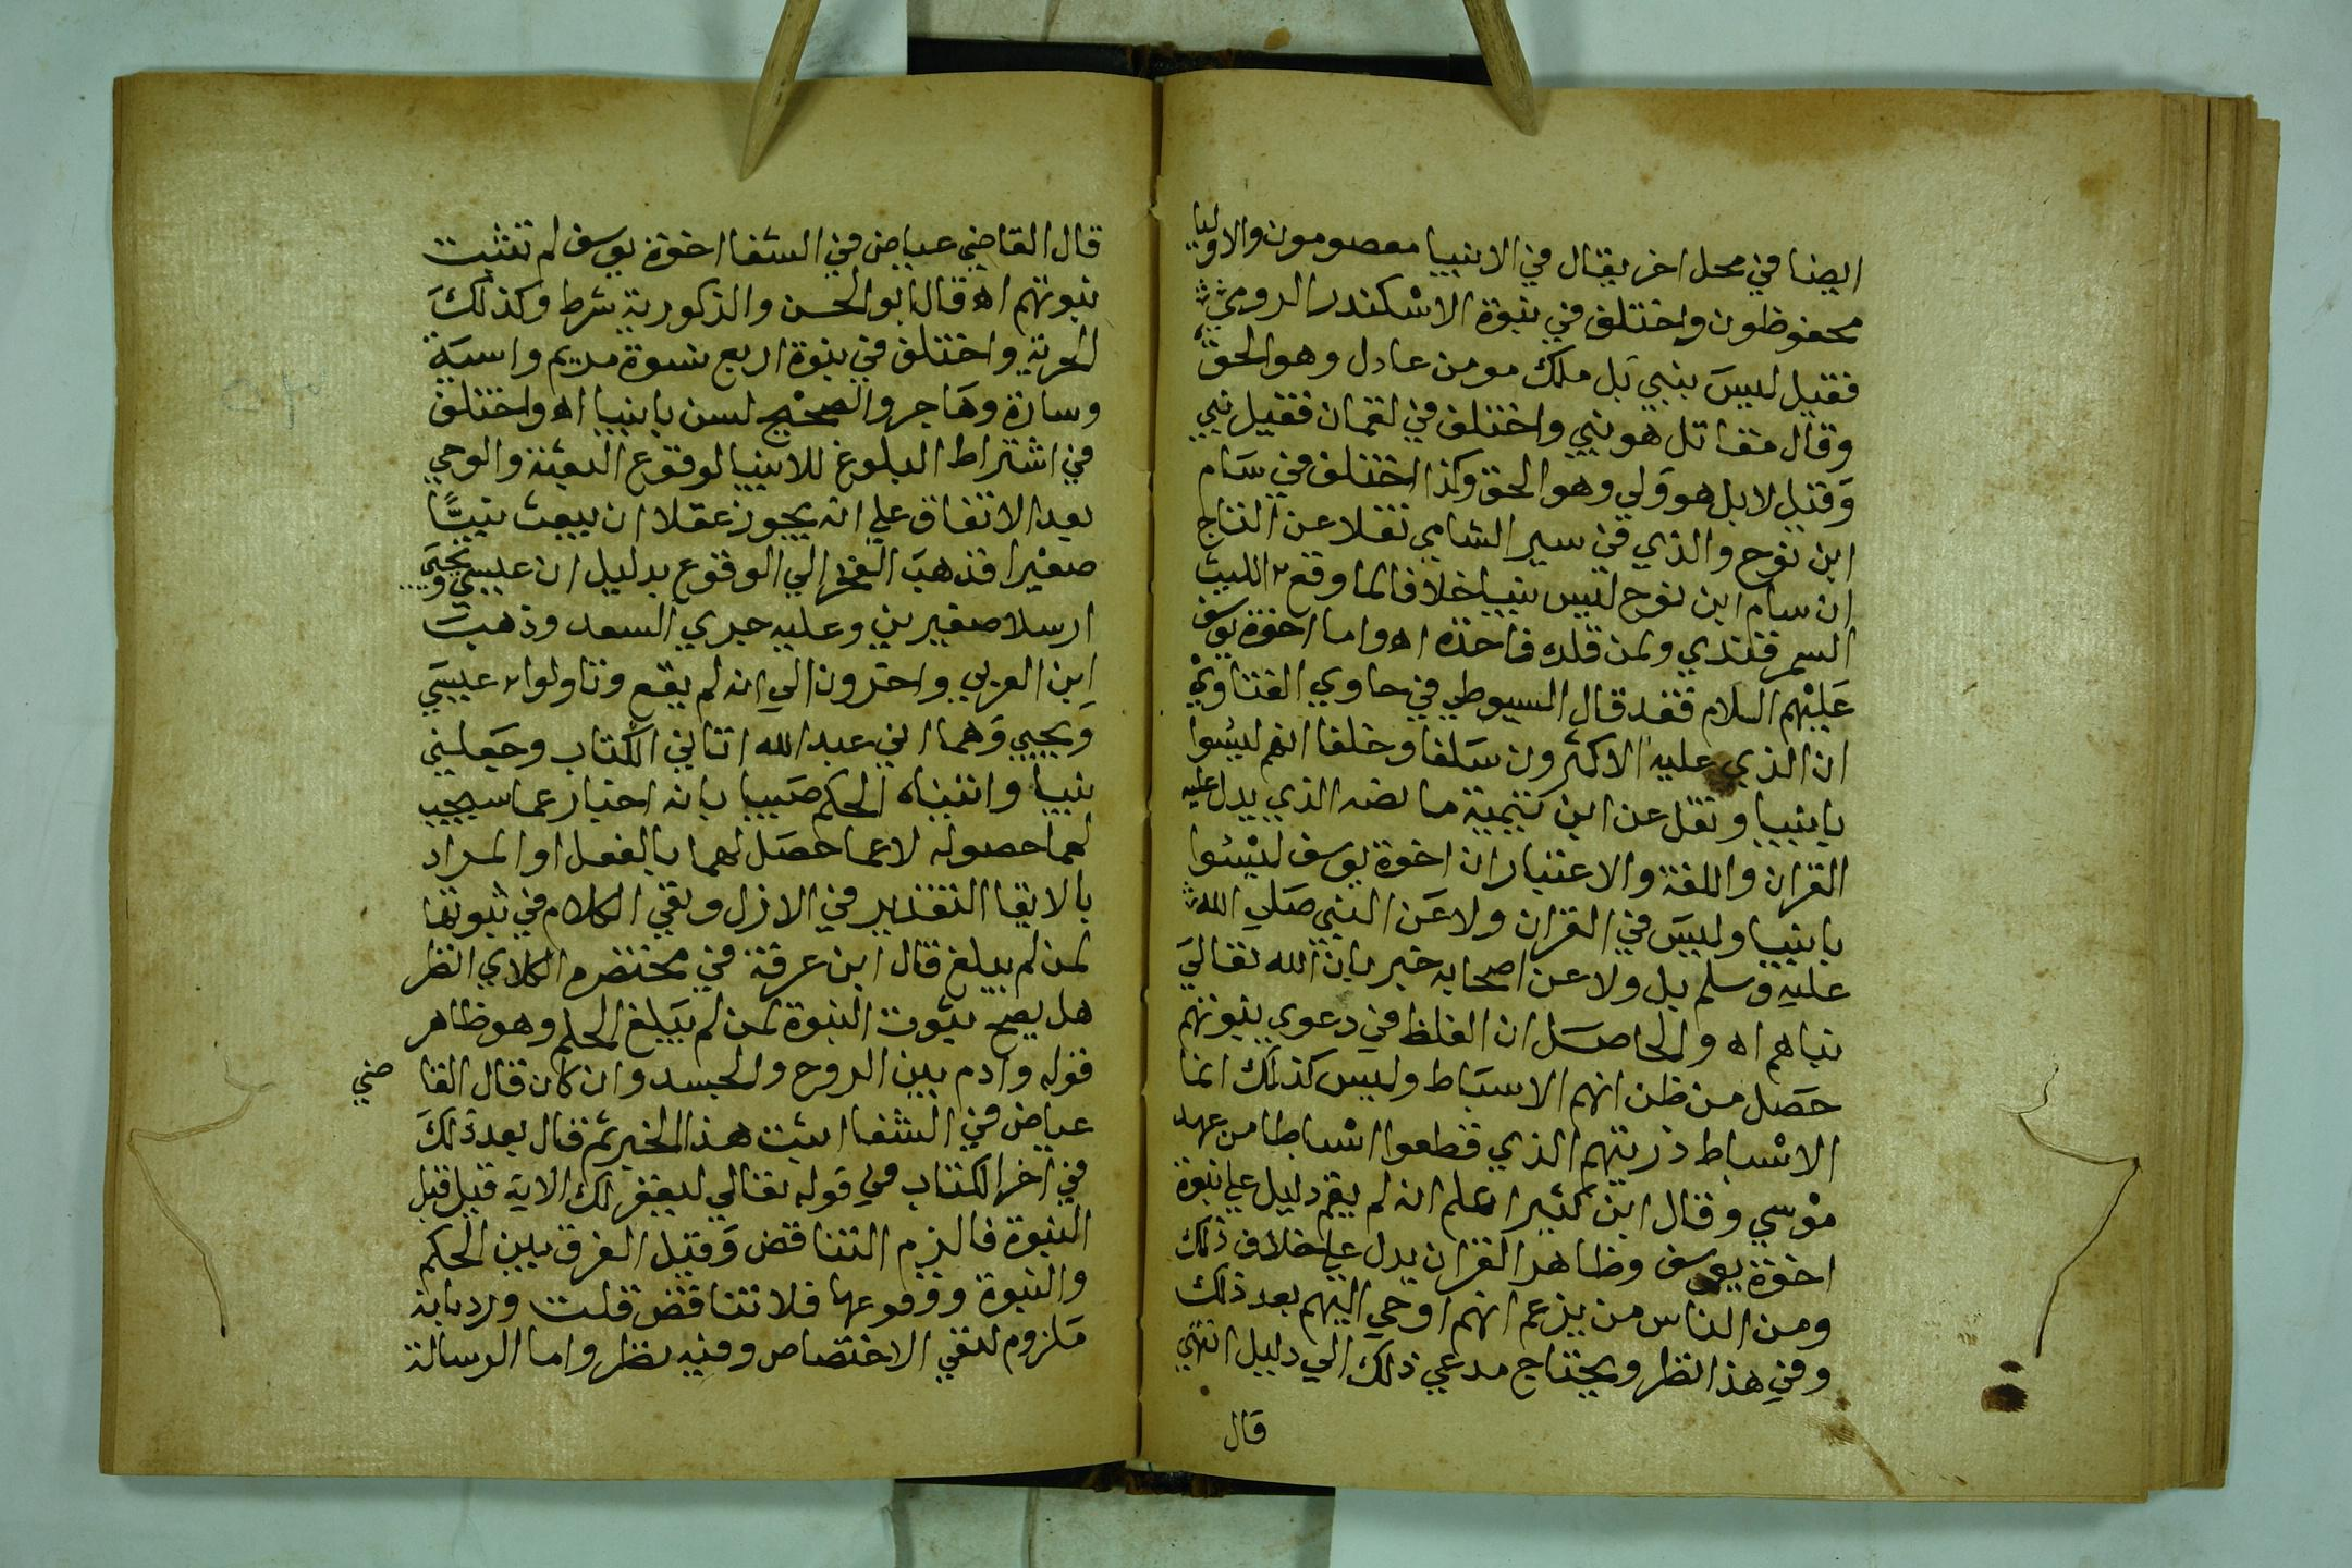 ايضا في محل اخر يقال في الانبيا معصومون والاوليا
محفوظون واختلف في نبوة الاسكندر الرومي
فقيل ليس بنبي بل ملك مومن عادل وهو الحق
وقال مقاتل هو نبي واختلف في لقمان فقيل نبي
وقيل لا بل هو ولي وهو الحق وكذا اختلف في سام
ابن نوح والذي في سير الشامي نقلا عن التاج
ان سام ابن نوح ليس نبيا خلافا لما وقع لليث
السمرقندي ولمن قلده فاحذه اه واما اخوة يوسف
عليهم السلام فقد قال السيوطي في حاوي الفتاوي
ان الذي عليه الاكثرون سلفا وخلفا انهم ليسوا
بانبيا ونقل عن ابن تيمية ما نصه الذي يدل عليه
القران واللغة والاعتبار ان اخوة يوسف ليسوا
بانبيا وليس في القران ولا عن النبي صلي الله
عليه وسلم بل ولا عن اصحابه خبر بان الله تعالي
نباهم اه والحاصل ان الغلط في دعوي نبوتهم
حصل من ظن انهم الاسباط وليس كذلك انما
الاسباط ذريتهم الذي قطعوا اسباطا من عهد
موسي وقال ابن كثير اعلم انه لم يقم دليل علي نبوة
اخوة يوسف وظاهر القران يدل علي خلاف ذلك
ومن الناس من يزعم انهم اوحي اليهم بعد ذلك
وفي هذا نظر ويحتاج مدعي ذلك الي دليل انتهي
قال
قال القاضي عياض في الشفا اخوة يوسف لم تثبت
نبوتهم اه قال ابو الحسن والذكورية شرط وكذلك
الحرية واختلف في نبوة اربع نسوة مريم واسية
وسارة وهاجر والصحيح لسن بانبيا اه واختلف
في اشتراط البلوغ للانبيا لوقوع البعثة والوحي
بعد الاتفاق علي انه يجوز عقلا ان يبعث نبيا
صغيرا فذهب الفخر الي الوقوع بدليل ان عيسي ويحيي
ارسلا صغيرين وعليه جري السعد وذهبت
ابن العربي واخرون الي انه لم يقع وتاولوا عيسي
ويحيي وهما اني عبد الله اتاني الكتاب وجعلني
نبيا واتيناه الحكم صبيا بانه اخبار عما سيجب
لهما حصوله لا عما حصل لهما بالفعل او المراد
بالايتا التقدير في الازل وبقي الكلام في ثبوتها
لمن لم يبلغ قال ابن عرفة في مختصره الكلامي انظر
هل يصح ثبوت النبوة لمن لم يبلغ الحلم وهو ظاهر
قوله وادم بين الروح والجسد وان كان قال القا
ضي
عياض في الشفا اثبت هذا الخبر ثم قال بعد ذلك
في اخر الكتاب في قوله تعالي ليغفر لك الاية قيل قبل
النبوة فالزم التناقض وقيل الفرق بين الحكم
والنبوة ووقوعها فلا تناقض قلت ورد بانه
ملزوم لنفي الاختصاص وفيه نظر واما الرسالة